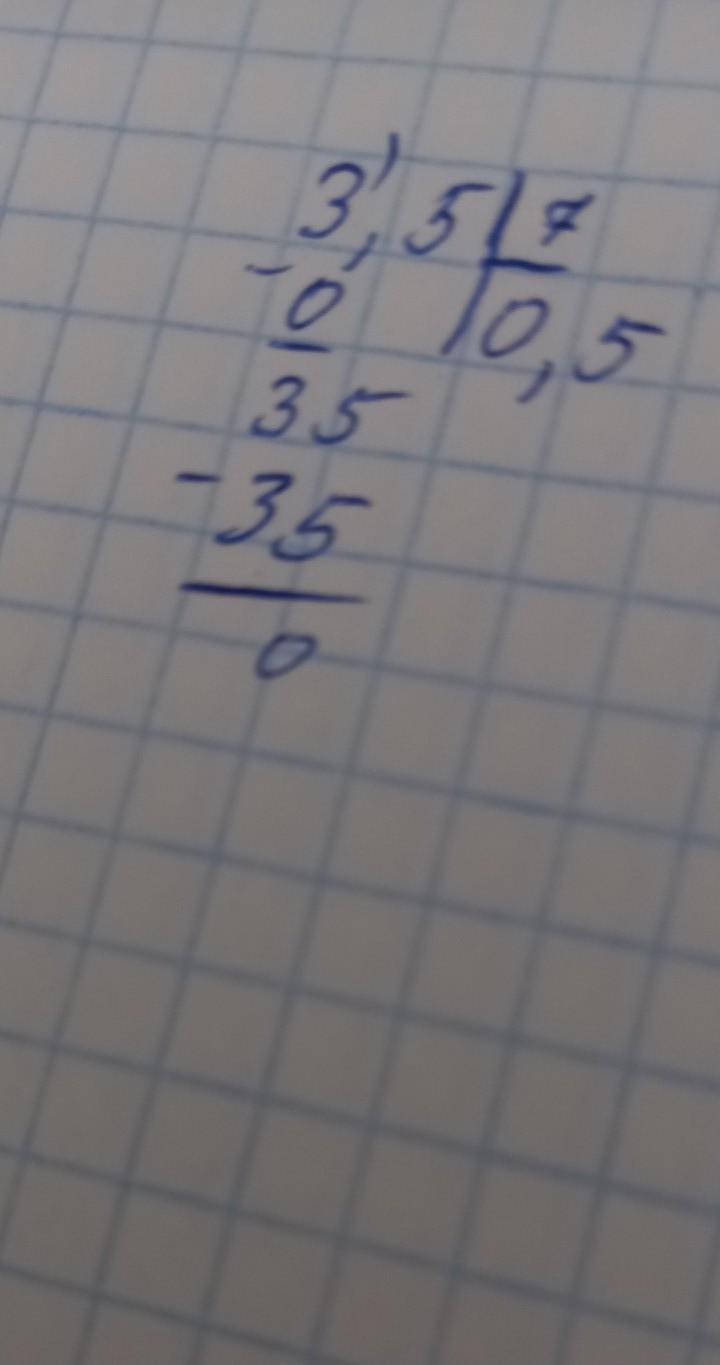 3,5 7
- 0 0,5
35
- 35
0